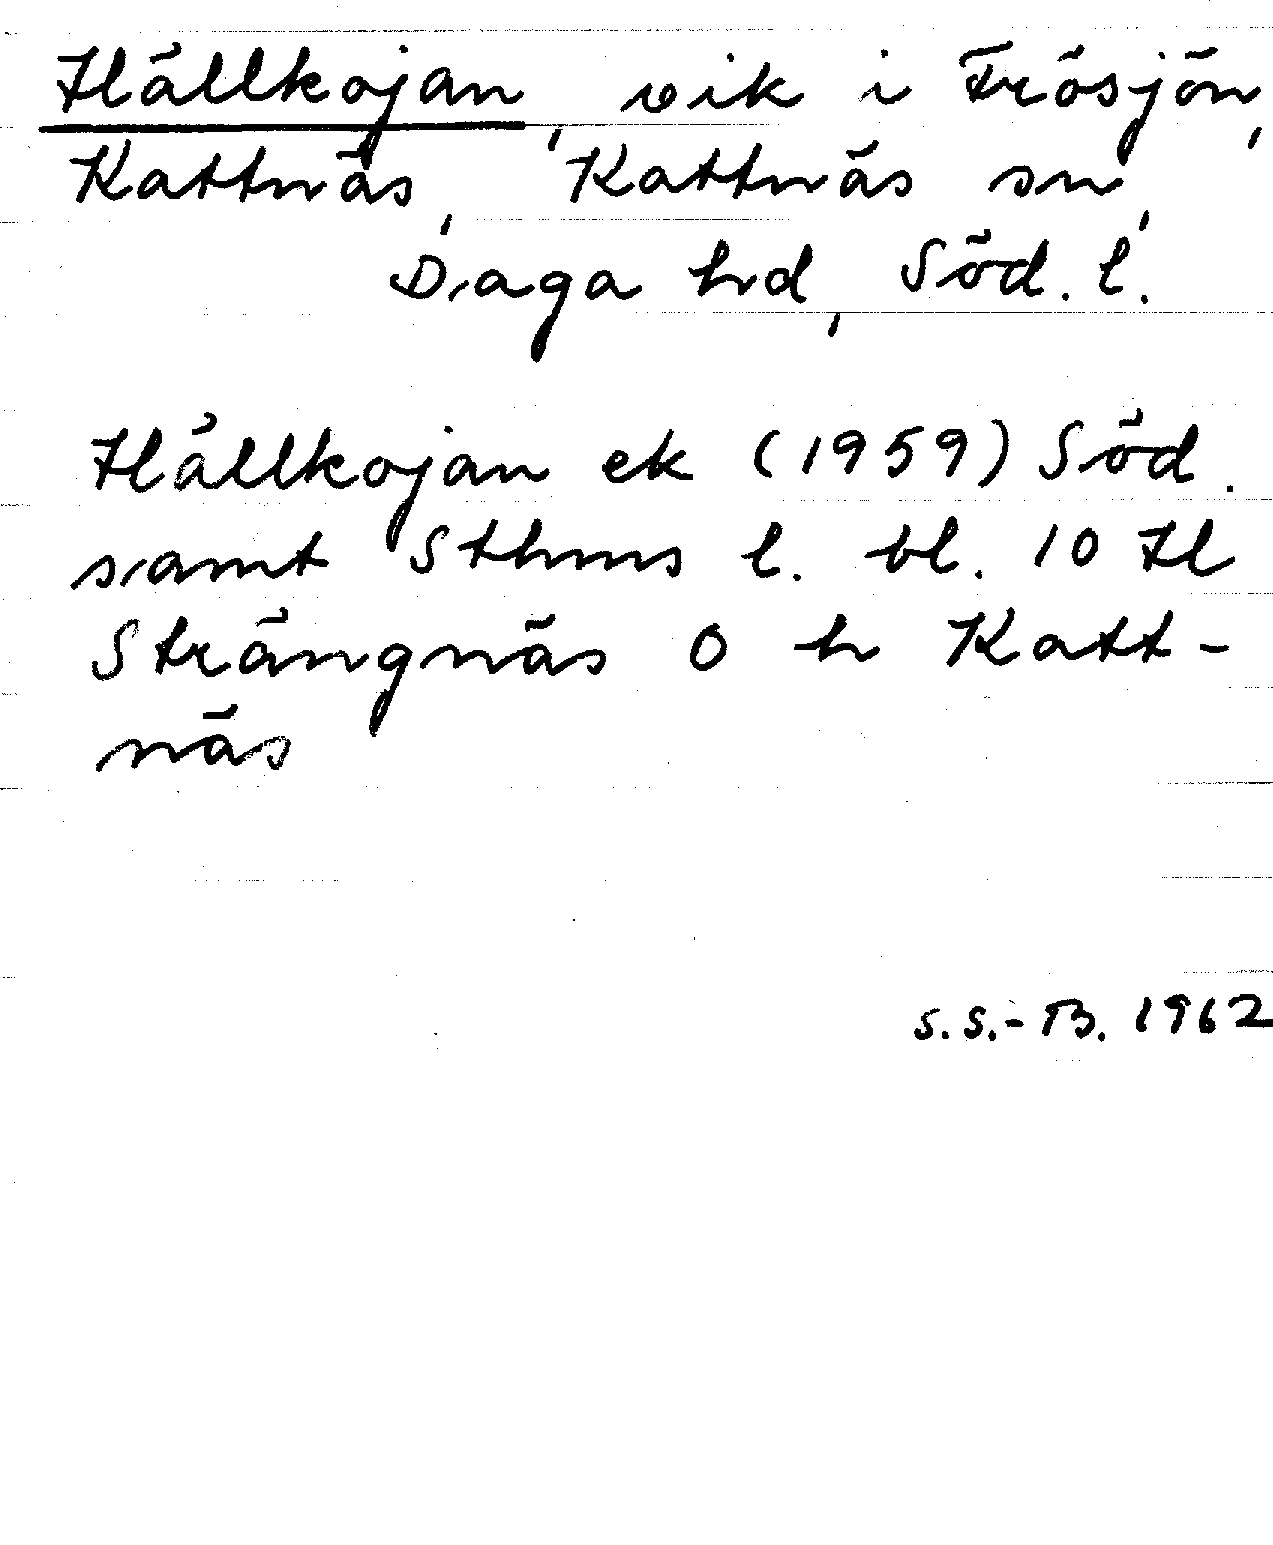 Hällkojan, vik i Frösjön,
Kattnäs, Kattnäs sn,
Daga hd, Söd. l.
Hållkojan ek (1959) Söd.
samt Sthms l. bl. 10 H
Strängnäs O h Katt-
näs
S.S.-B. 1962